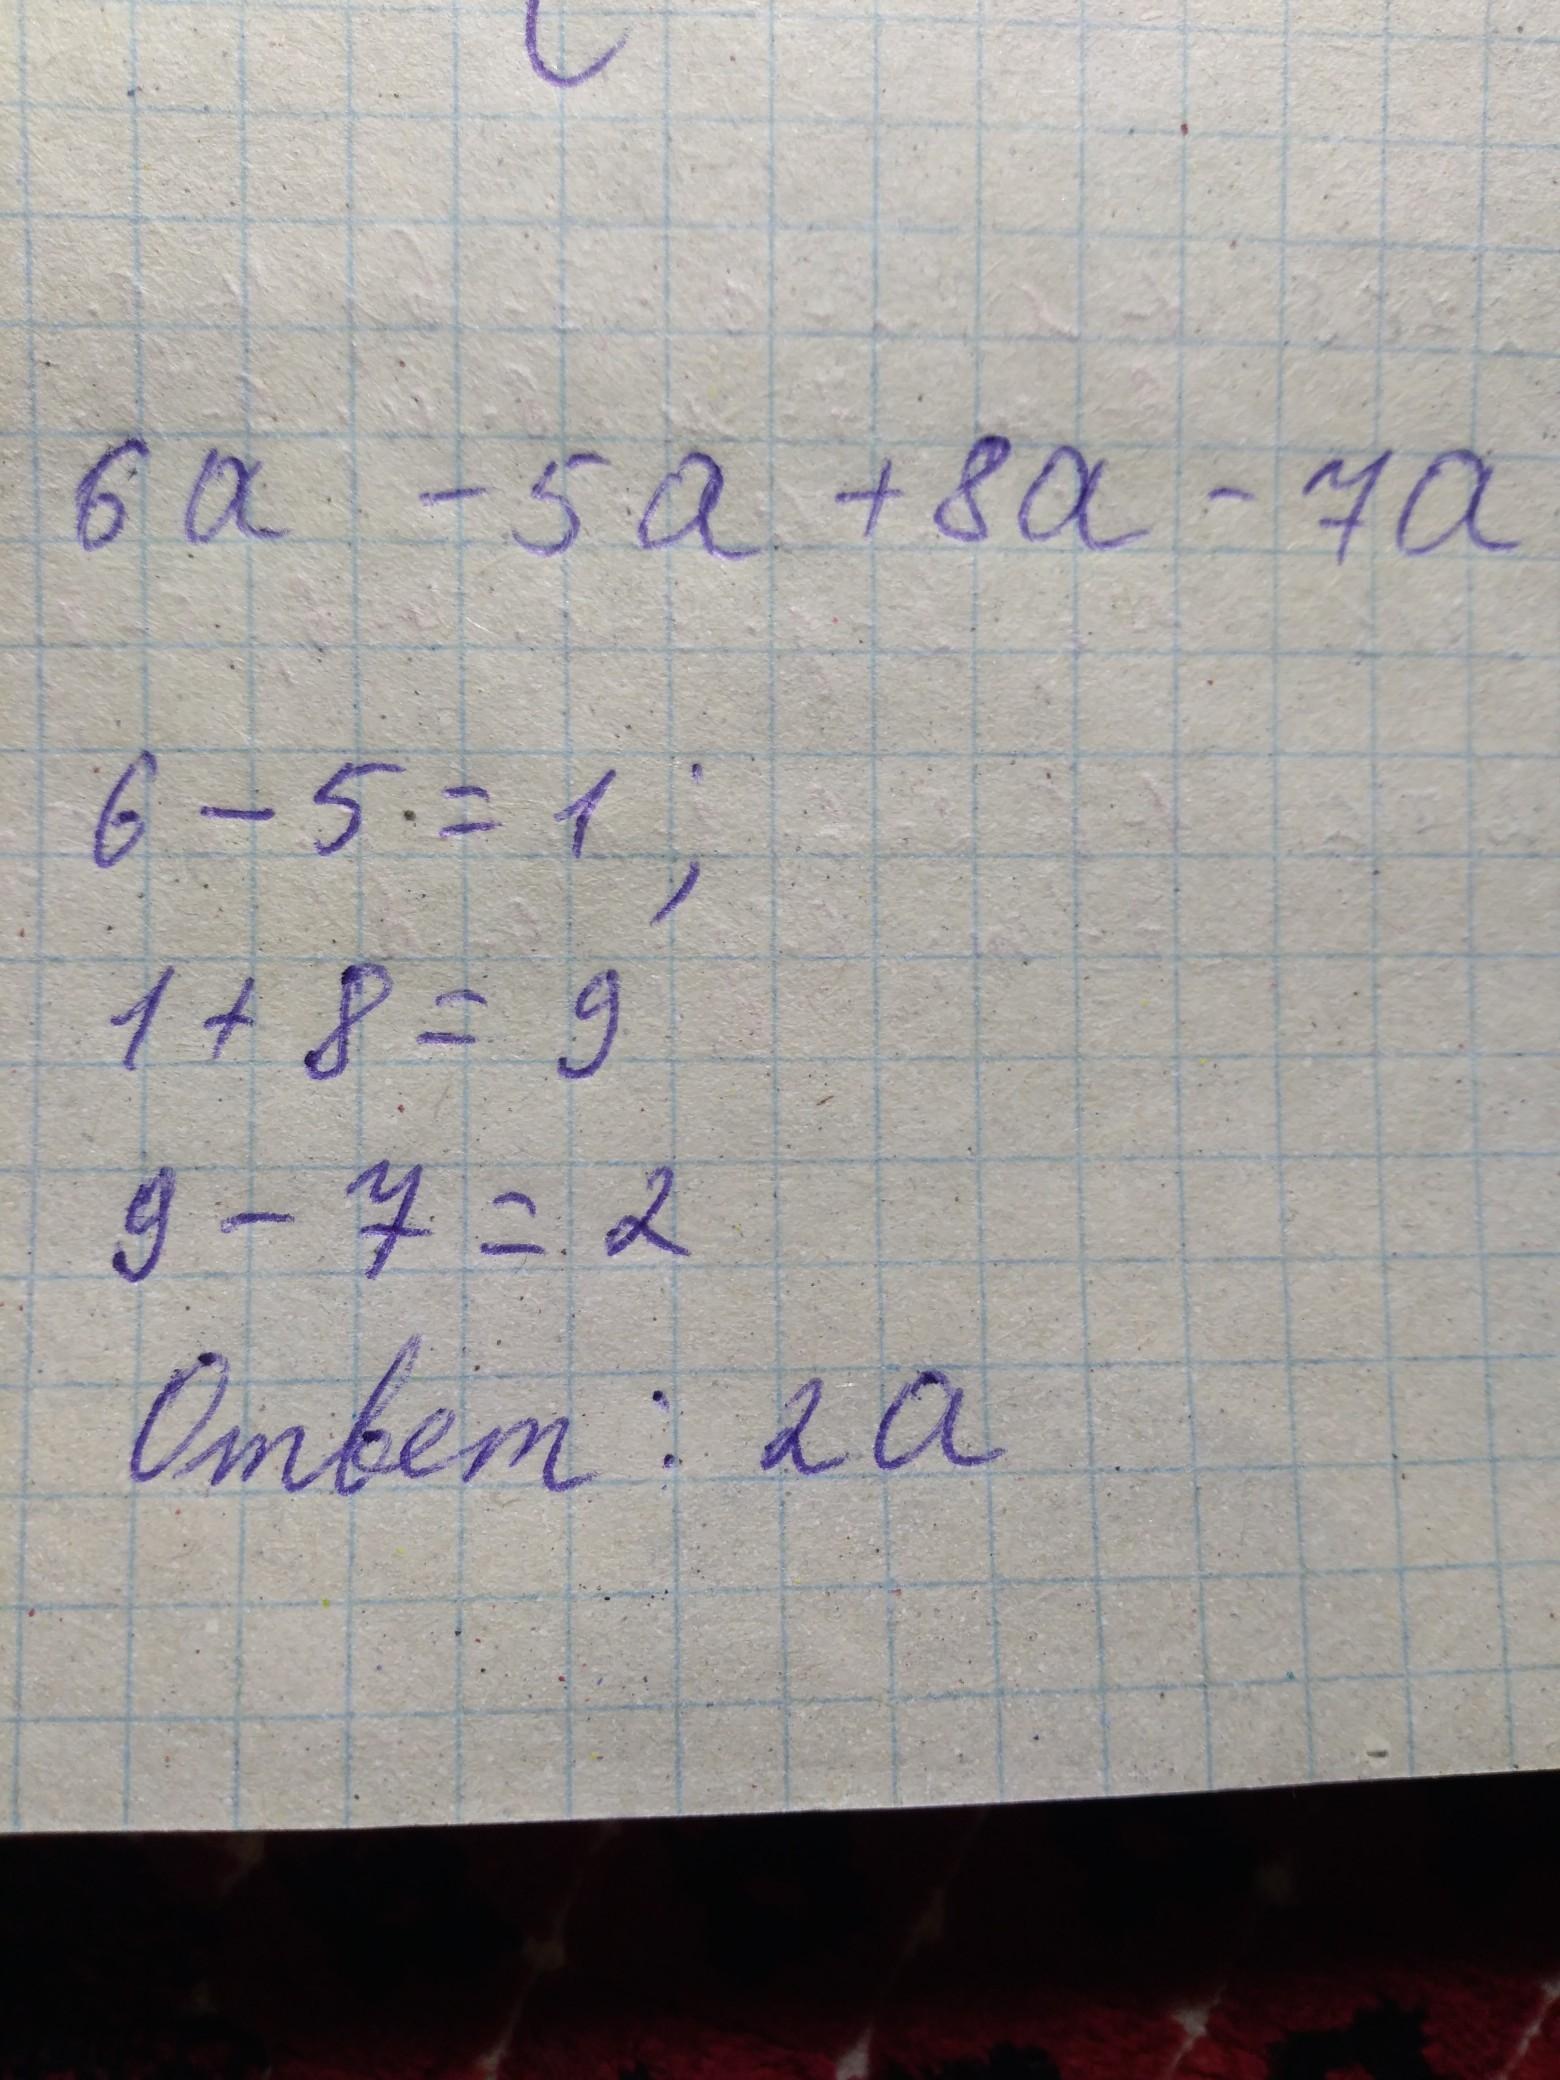 6a - 5a + 8a - 7a
6 - 5 = 1;
1 + 8 = 9
9 - 7 = 2
Ответ: 2a